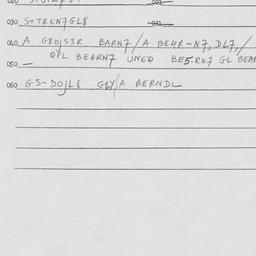 030 S+TREN7GL8 031
040 A GROJS3R BARN7/A BE4R-N7, DL7,/
QPL BE4RN7 UNEQ BE5.RN7 GL BEAR
050
060 G3-DOJL8 A BERNDL